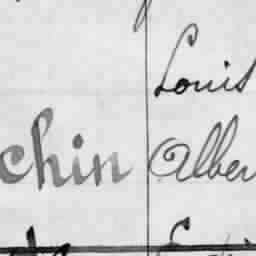 Louis
chin Alber